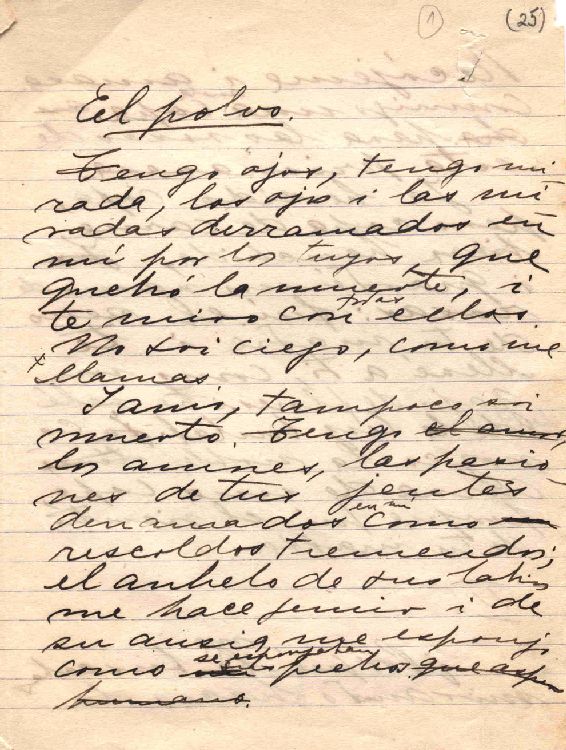 1
(25)
El polvo.
Tengo ojos, tengo mi
rada, los ojos i las mi
radas derramados en
mí por los tuyos, que
quebró la muerte, i
te miro con todas ellas
No soi ciego, como me
x llamas
I amo, tampoco soi
muerto. Tengo el amor,
los amores, las pasio
nes de tus jentes
derramados en mí como
rescoldos tremendos;
el anhelo de sus labios
me hace jemir i de
su me esponjo
como pechos que
humano.